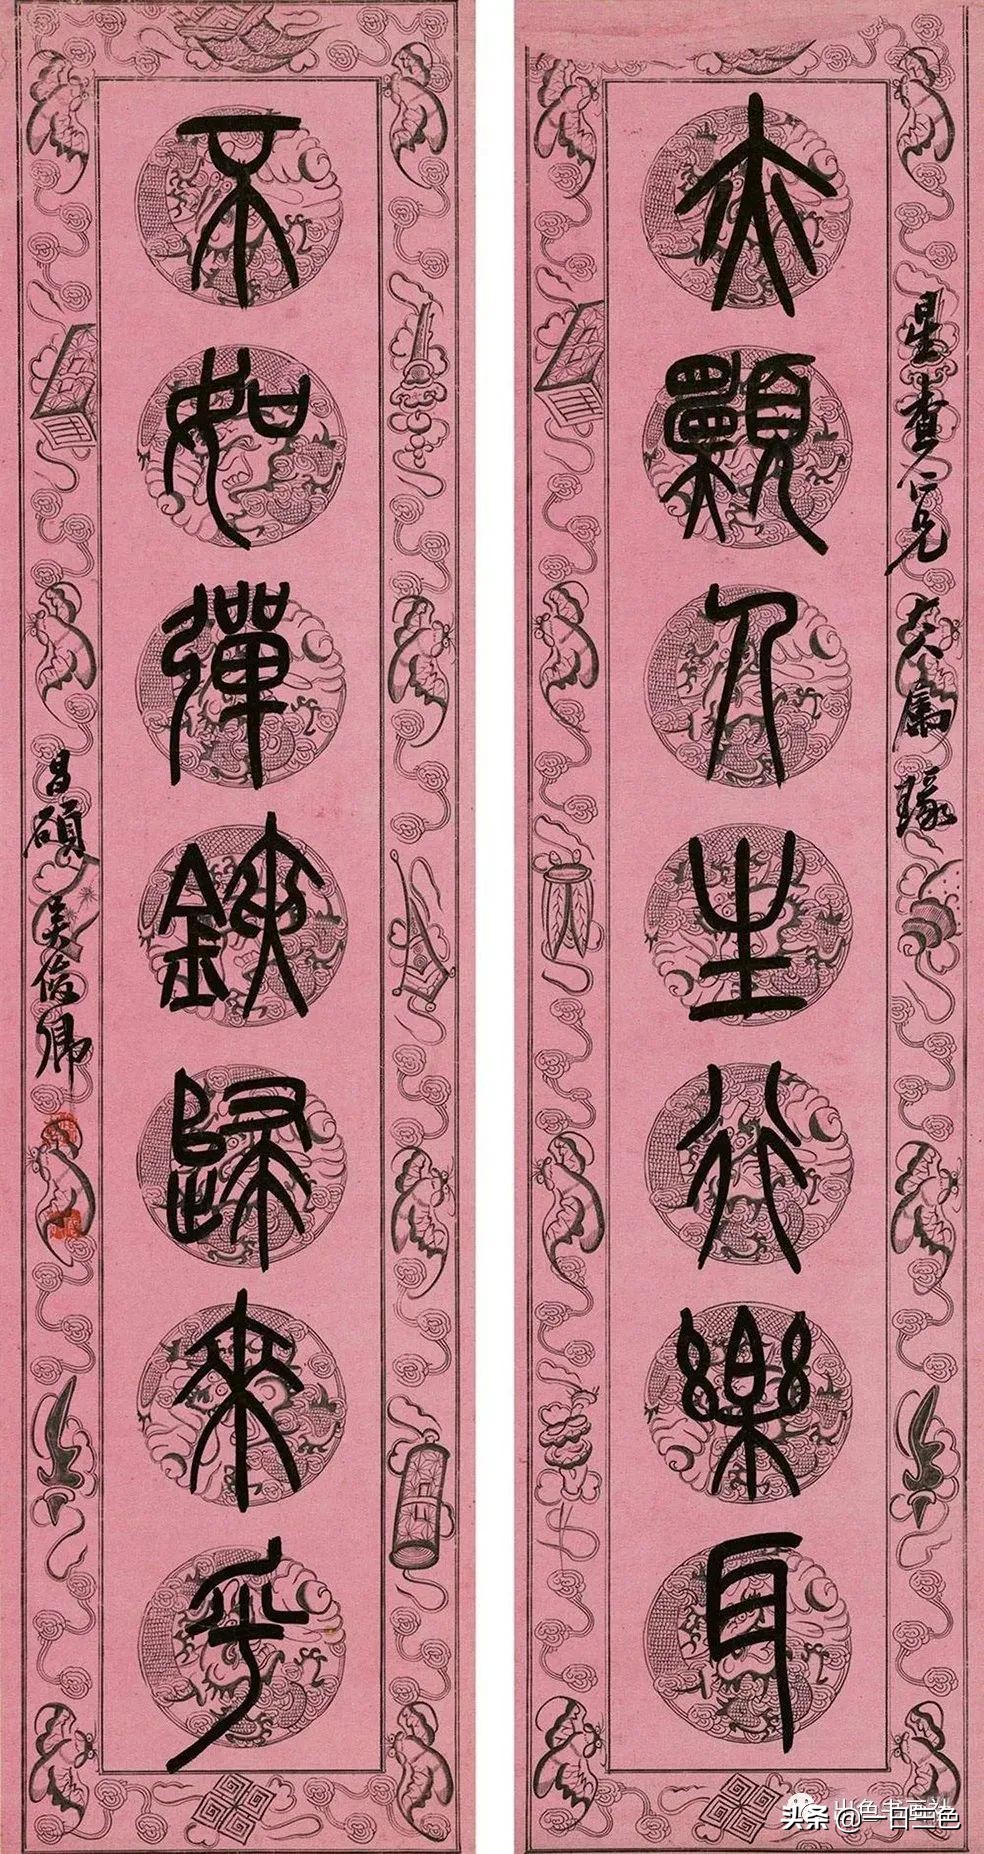 星查仁兄大屬瑑
大人生行樂耳
不如彈鋏歸來乎
昌碩吳俊卿
出色书画社
头条